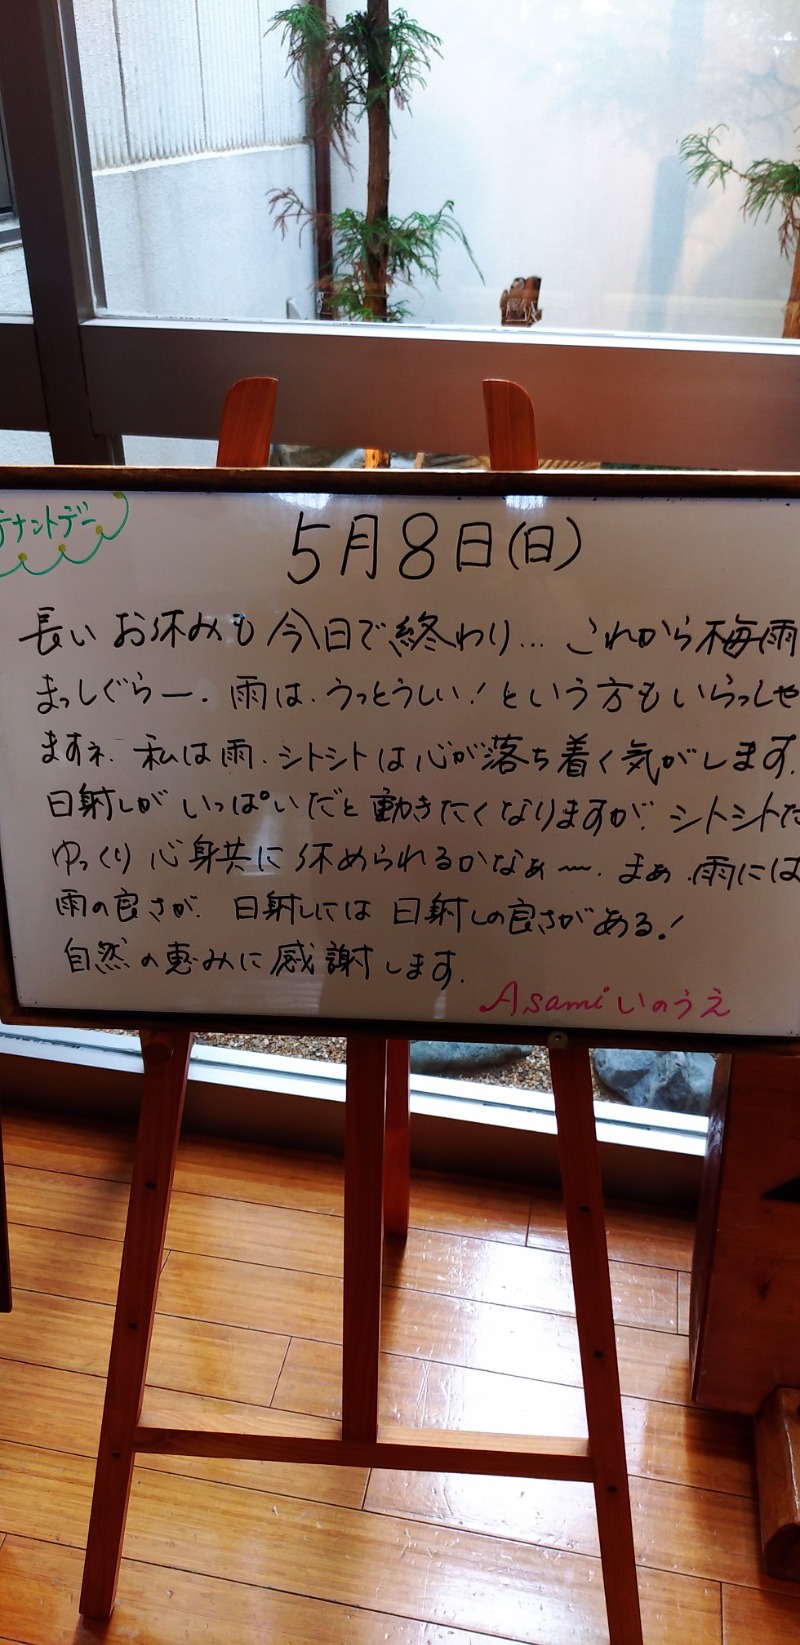 テナントデー
5月8日(日)
長いお休みも今日で終わり… これから梅雨
まっしぐらー. 雨は.うっとうしい!という方もいらっしゃ
ますネ. 私は雨.シトシトは心が落ち着く気がします.
日射しがいっぱいだと動きたくなりますが.シトシトだ
ゆっくり心身共に休められるかなぁ〜. まぁ.雨には
雨の良さが. 日射しには日射しの良さがある!
自然の恵みに感謝します.
Asamiいのうえ